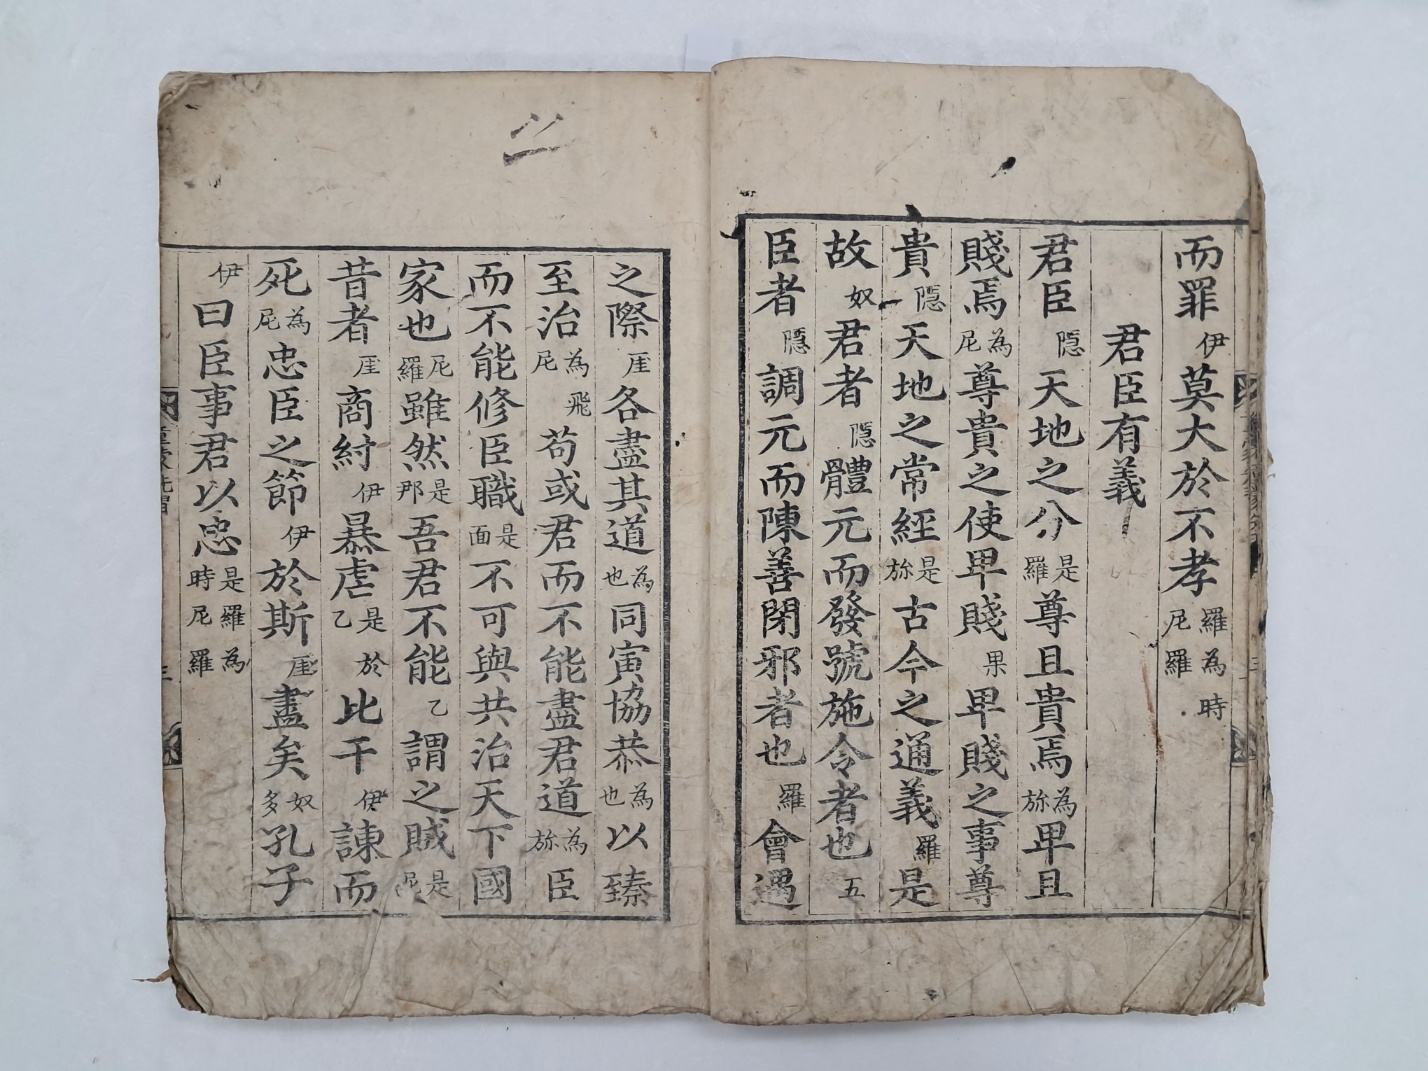 而罪伊莫大於不孝羅為時尼羅
君臣有義
君臣隱天地之分是羅尊且貴焉為旀卑且
賤焉為尼尊貴之使卑賤果卑賤之事尊
貴隱天地之常經是旀古今之通義羅是
故奴君者隱體元而發號施令者也五
臣者隱調元而陳善閉邪者也羅會遇
之際厓各盡其道為也同寅協恭為也以臻
至治為尼飛苟或君而不能盡君道為旀臣
而不能修臣職是面不可與共治天下國
家也尼羅雖然是那吾君不能乙謂之賊是尼
昔者厓商紂伊暴虐是乙於比干伊諫而
死為尼忠臣之節伊於斯厓盡矣奴多孔子
伊曰臣事君以忠是羅為時尼羅